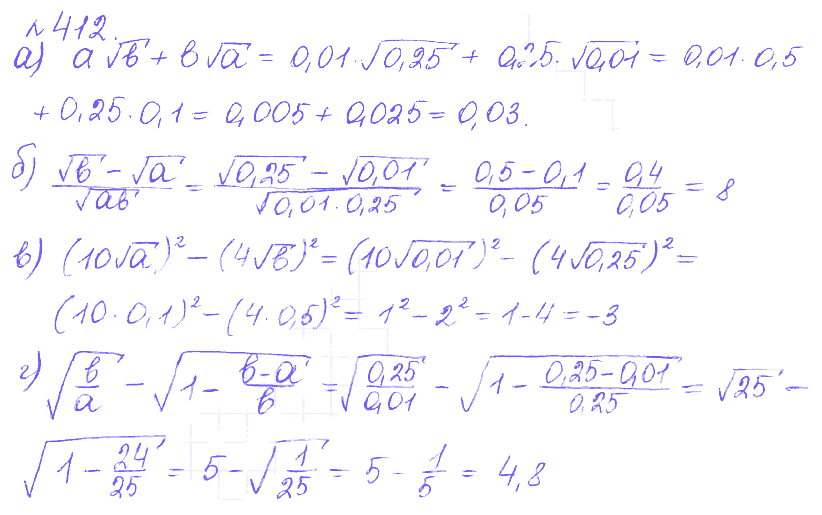 №412.
а) a√b + b√a = 0,01·√0,25 + 0,25·√0,01 = 0,01·0,5
+ 0,25·0,1 = 0,005 + 0,025 = 0,03.
б) (√b − √a)/√(ab) = (√0,25 − √0,01)/√(0,01·0,25) = (0,5 − 0,1)/0,05 = 0,4/0,05 = 8
в) (10√a)² − (4√b)² = (10√0,01)² − (4√0,25)² =
(10·0,1)² − (4·0,5)² = 1² − 2² = 1 − 4 = −3
г) √(b/a) − √(1 − (b−a)/b) = √(0,25/0,01) − √(1 − (0,25−0,01)/0,25) = √25 −
√(1 − 24/25) = 5 − √(1/25) = 5 − 1/5 = 4,8